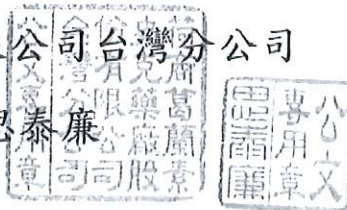 公司台灣分公司
思泰廉
荷商葛蘭素
史克藥廠股
份有限公司
台灣分公司
公文專用章
公文
專用章
思泰廉